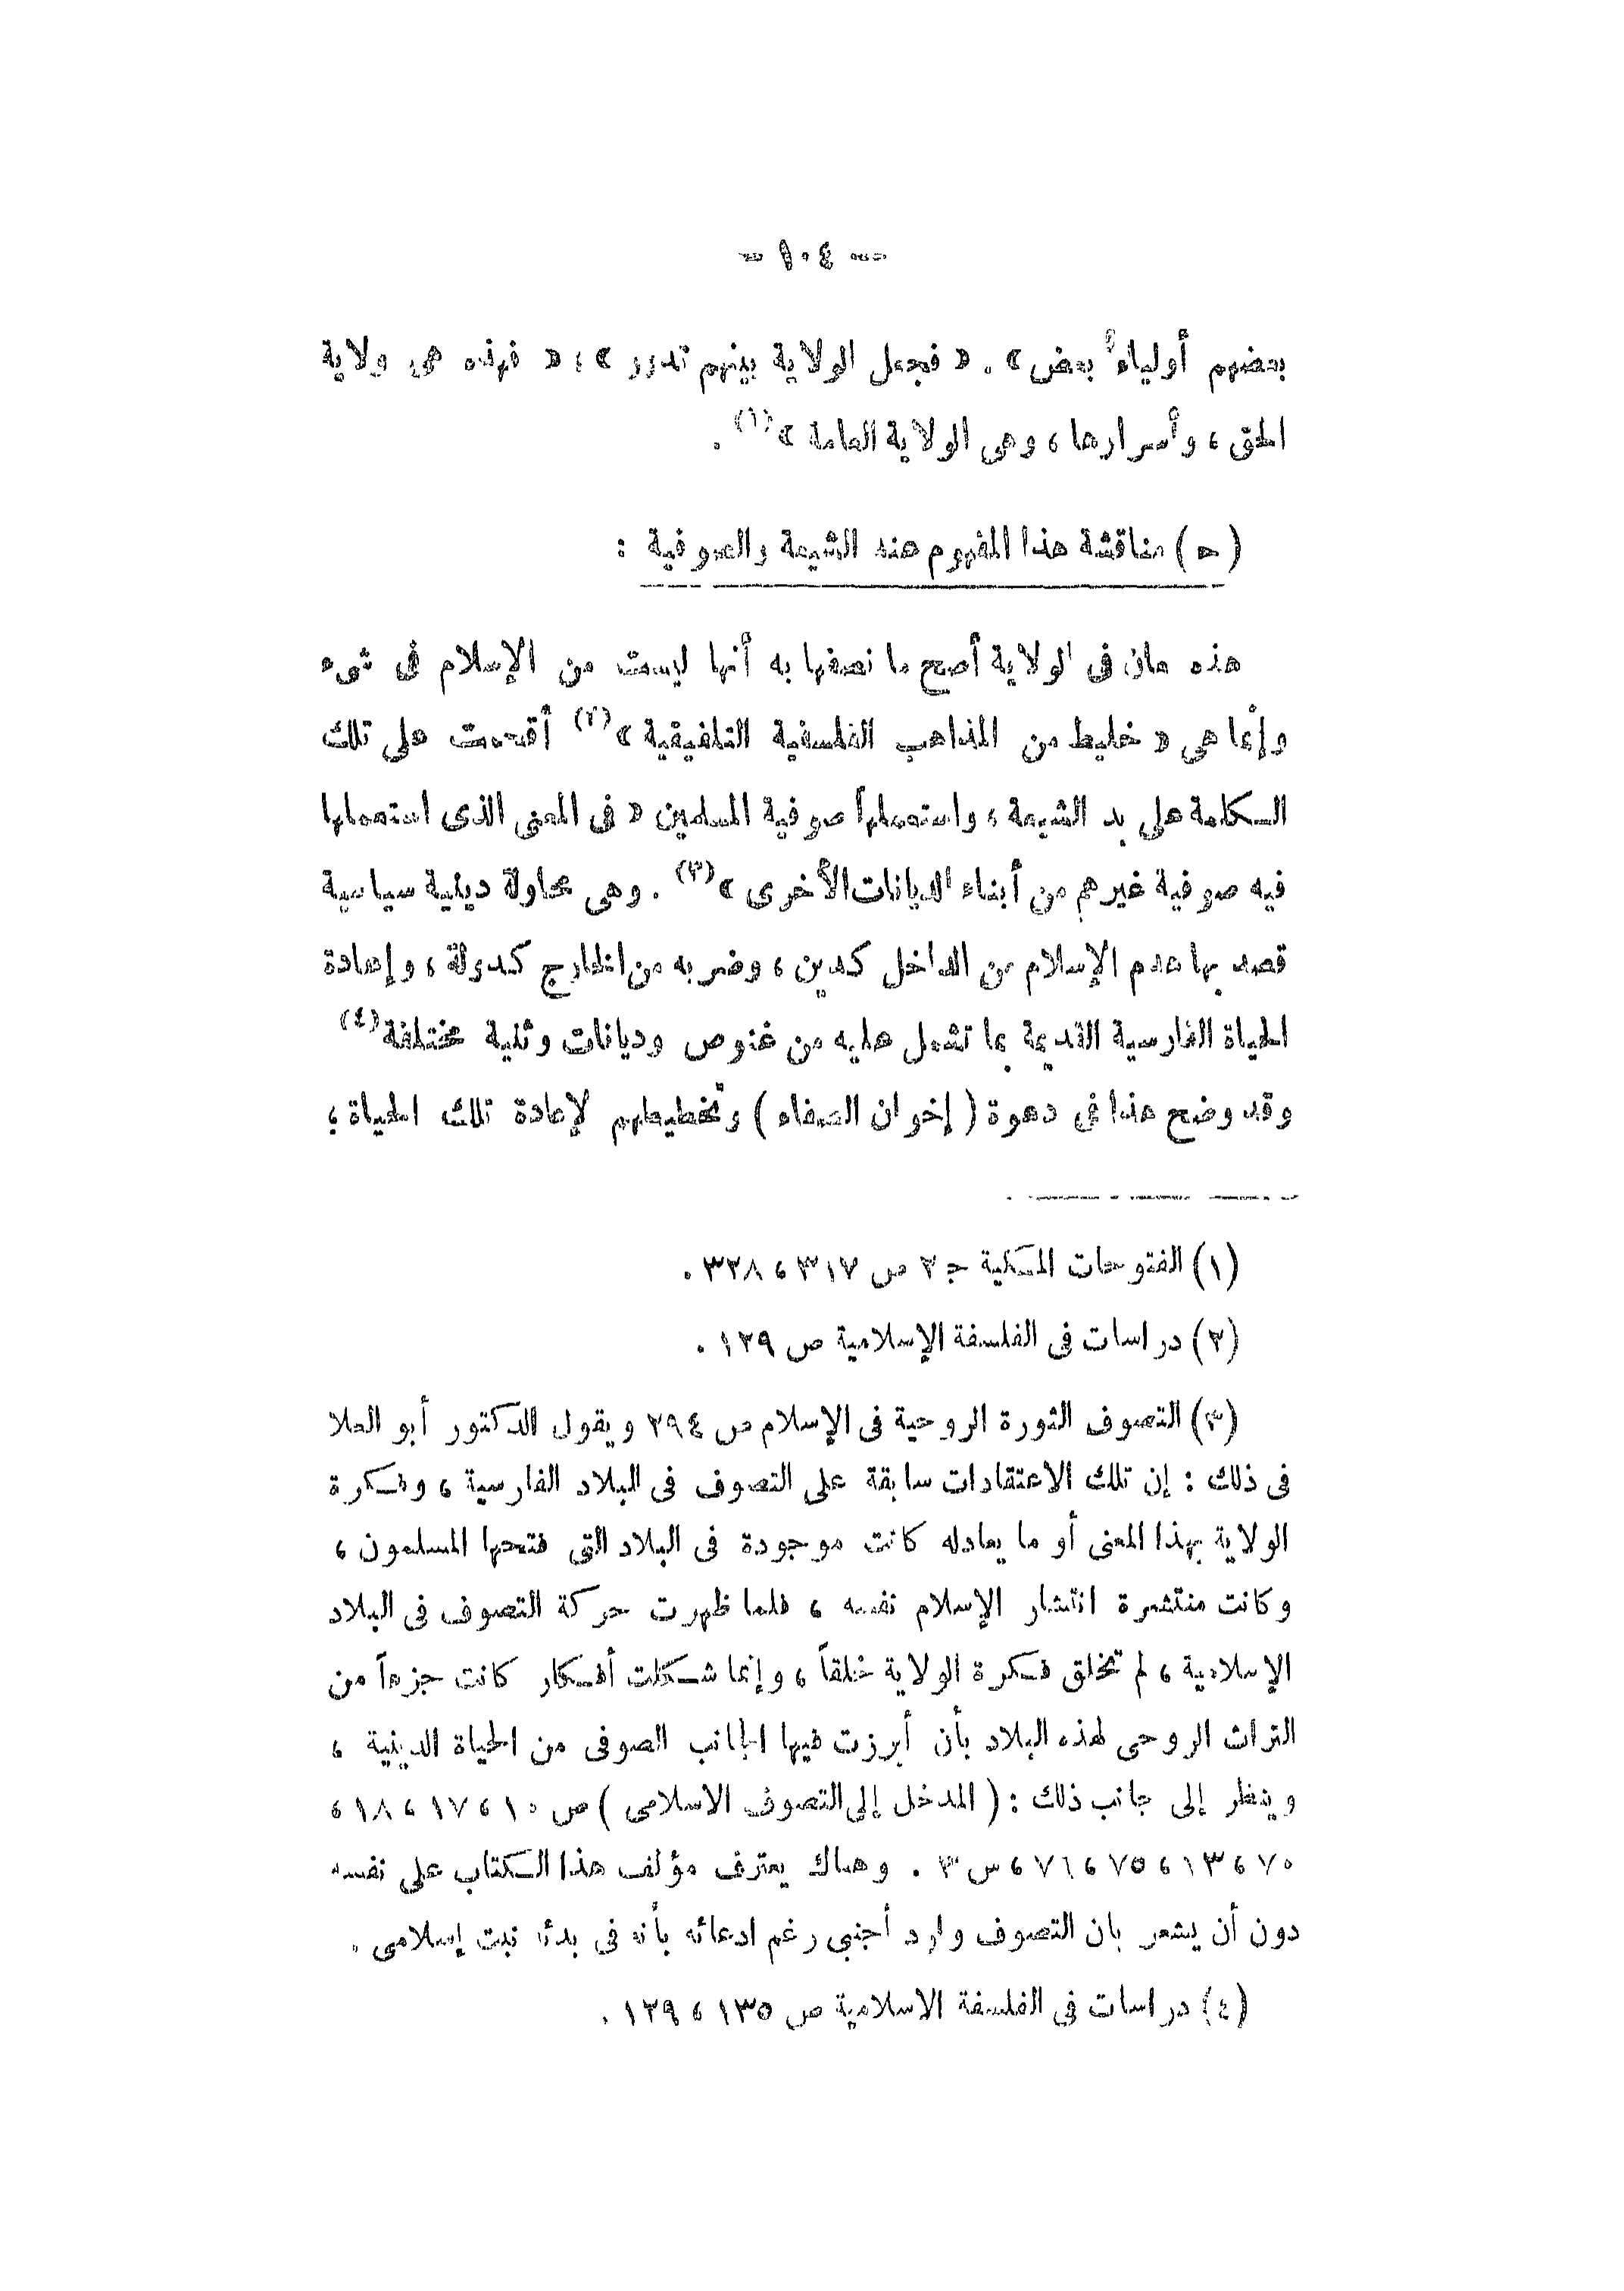 بعضهم أولياءُ بعض » . « فجعل الولاية بينهم تدور » ؛ « فهذه هى ولاية
الحق ، وأسرارها ، وهى الولاية العامة »(١) .
( ح ) مناقشة هذا المفهوم عند الشيعة والصوفية :
هذه معان فى الولاية أصح ما نصفها به أنها ليست من الإسلام فى شىء
وإنما هى « خليط من المذاهب الفلسفية التلفيقية »(٢) أقحمت على تلك
الكلمة على يد الشيعة ، واستعملها صوفية المسلمين « فى المعنى الذى استعملها
فيه صوفية غيرهم من أبناء الديانات الأخرى »(٣) . وهى محاولة دينية سياسية
قصد بها هدم الإسلام من الداخل كدين ، وضربه من الخارج كدولة ، وإعادة
الحياة الفارسية القديمة بما تشمل عليه من غنوص وديانات وثنية مختلفة(٤)
وقد وضح هذا فى دعوة ( إخوان الصفاء ) وتخطيطهم لإعادة تلك الحياة ؛
(١) الفتوحات المكية ج ٢ ص ٣١٧ ، ٣٢٨ .
(٢) دراسات فى الفلسفة الإسلامية ص ١٢٩ .
(٣) التصوف الثورة الروحية فى الإسلام ص ٢٩٤ ويقول الدكتور أبو العلا
فى ذلك : إن تلك الاعتقادات سابقة على التصوف فى البلاد الفارسية ، وفكرة
الولاية بهذا المعنى أو ما يعادله كانت موجودة فى البلاد التى فتحها المسلمون ،
وكانت منتشرة انتشار الإسلام نفسه ، فلما ظهرت حركة التصوف فى البلاد
الإسلامية ، لم تخلق فكرة الولاية خلقاً ، وإنما شكلت أفكار كانت جزءاً من
التراث الروحى لهذه البلاد بأن أبرزت فيها الجانب الصوفى من الحياة الدينية ،
وينظر إلى جانب ذلك : ( المدخل إلى التصوف الاسلامى ) ص ١٠ ، ١٧ ، ١٨ ،
٧٠ ، ١٣ ، ٧٥ ، ٧٦ ، س ٣ . وهناك يعترف مؤلف هذا الكتاب على نفسه
دون أن يشعر بان التصوف وارد أجنبى رغم ادعائه بأنه فى بدئه نبت إسلامى .
(٤) دراسات فى الفلسفة الاسلامية ص ١٣٥ ، ١٢٩ .